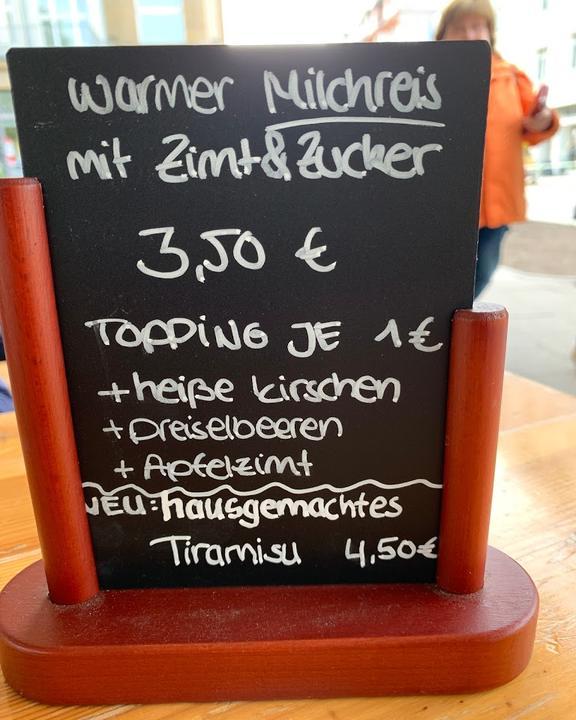 Warmer Milchreis
mit Zimt & Zucker
3,50 €
TOPPING JE 1€
+ heiße Kirschen
+ Preiselbeeren
+ Apfelzimt
NEU: hausgemachtes
Tiramisu 4,50€